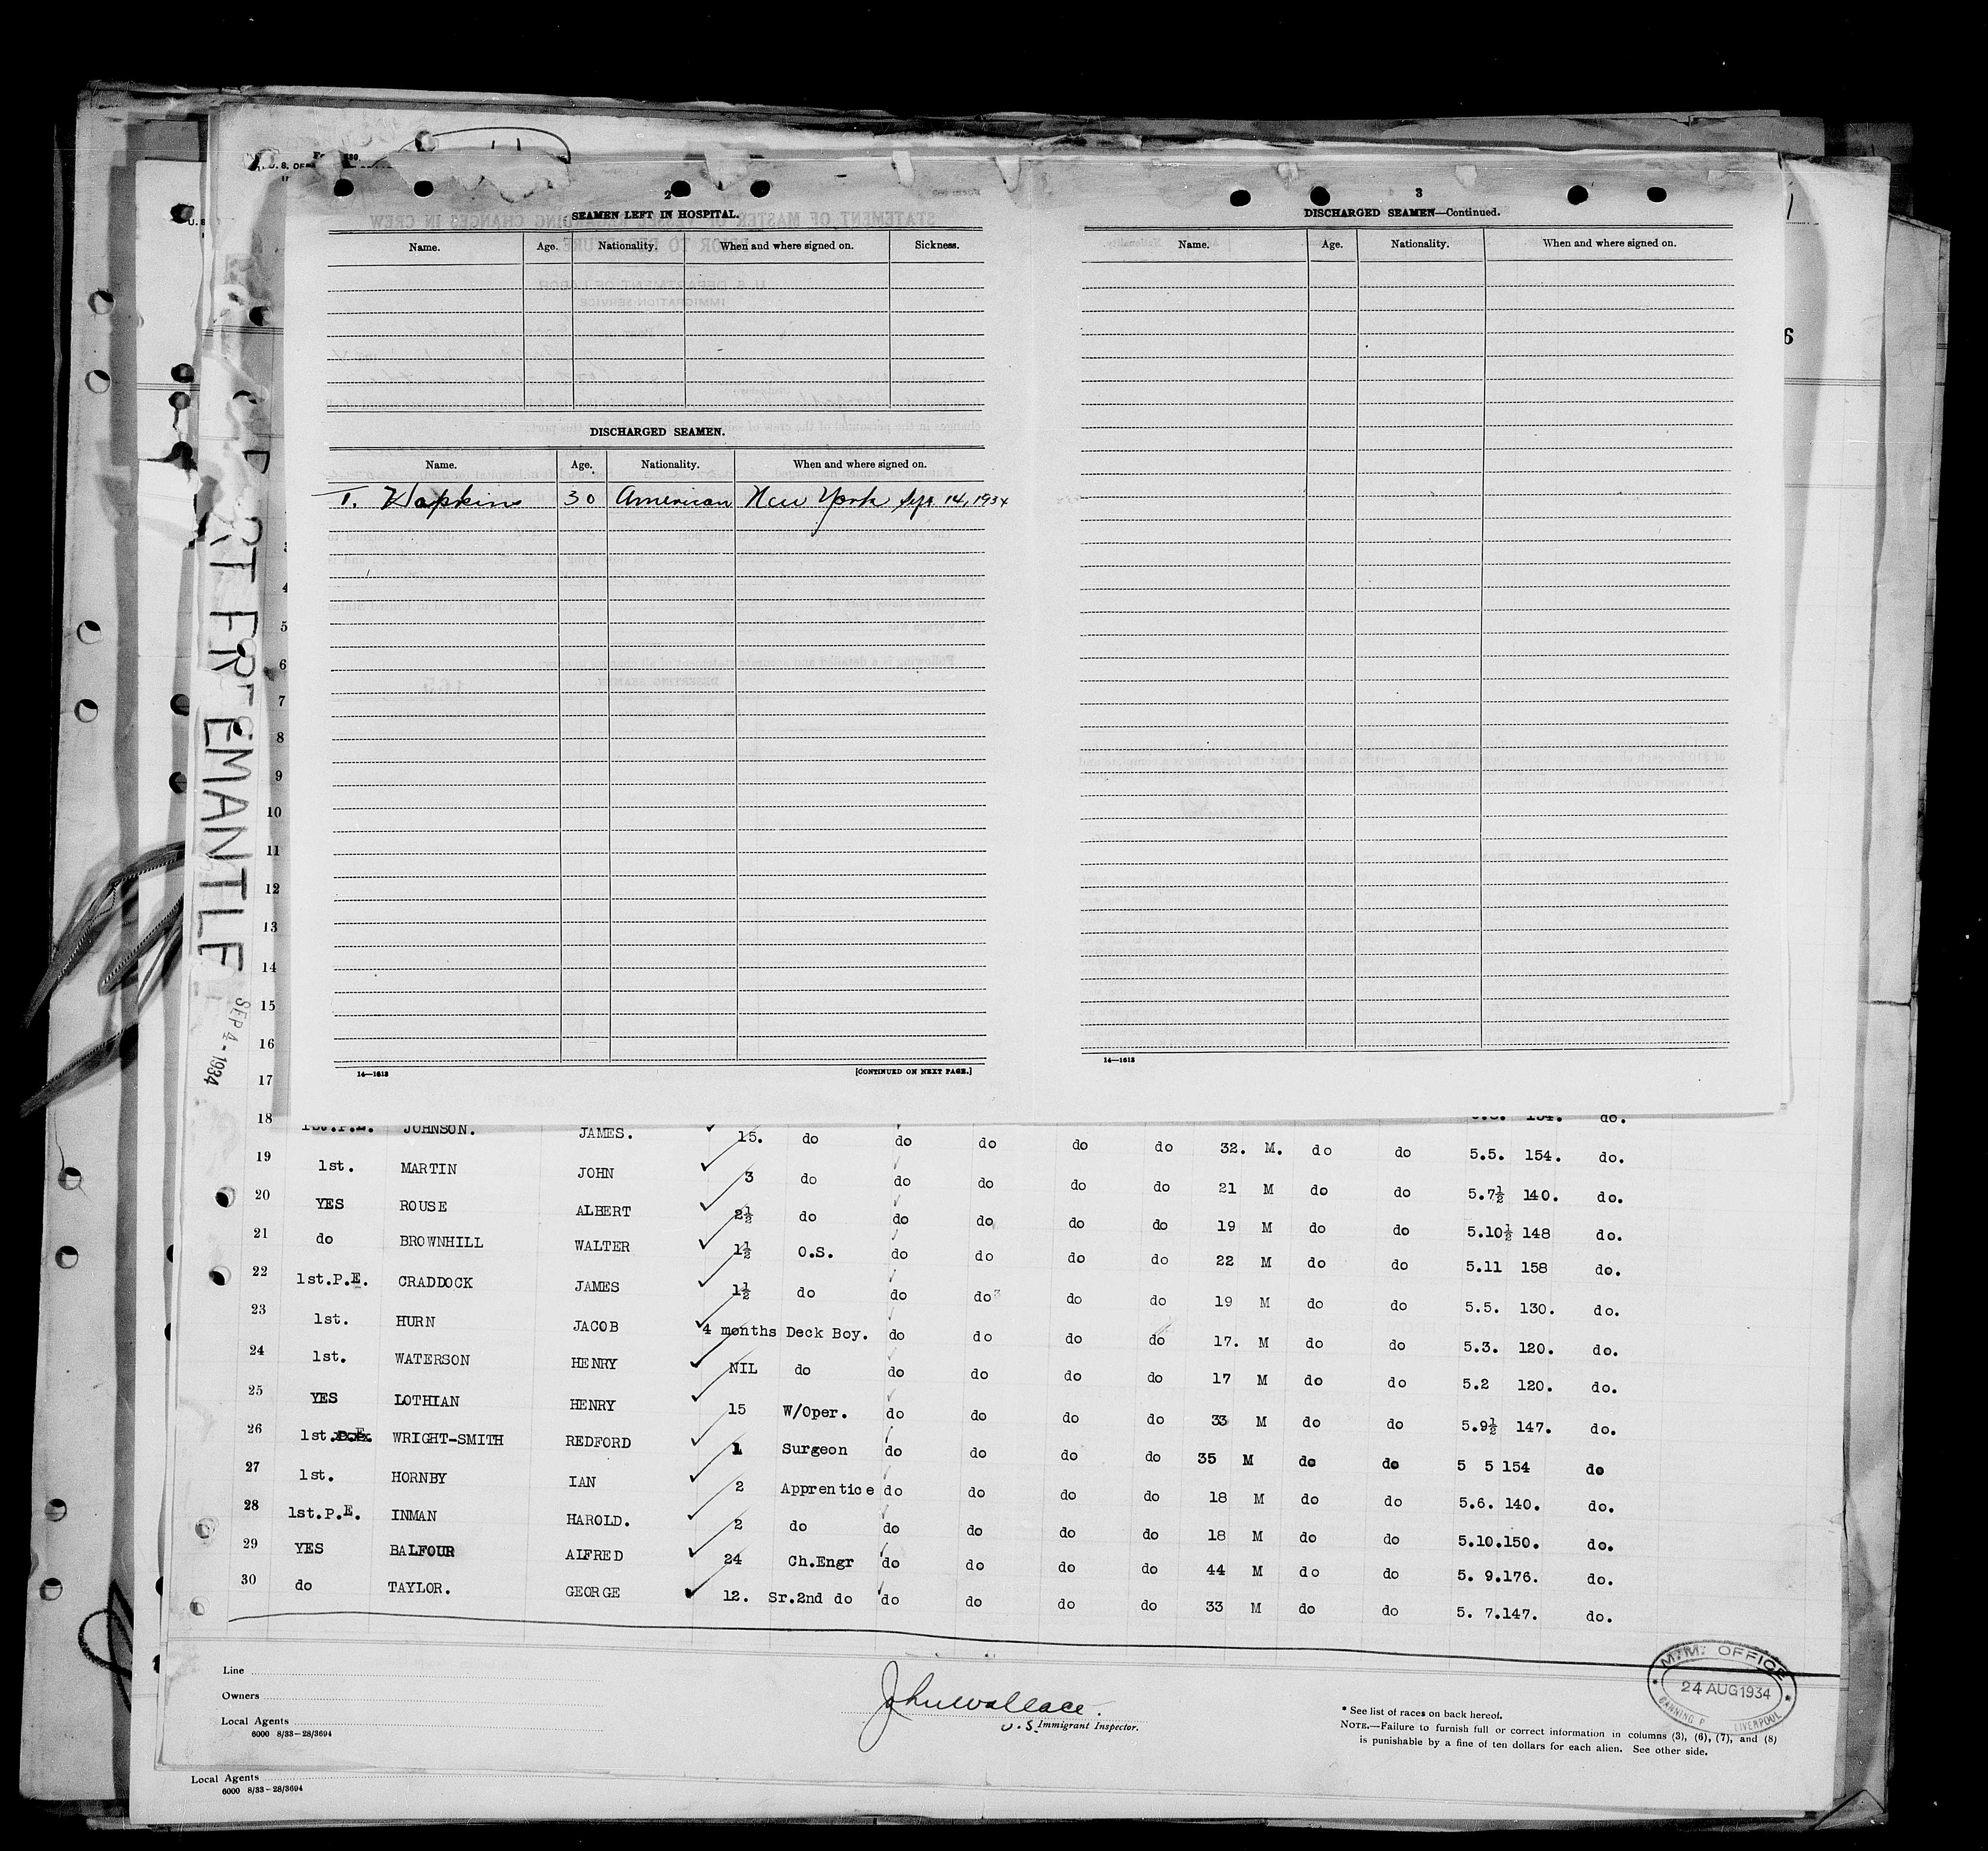 2
SEAMEN LEFT IN HOSPITAL.
Name. Age. Nationality. When and where signed on. Sickness.
DISCHARGED SEAMEN.
Name. Age. Nationality. When and where signed on.
T. Hopkins 30 American New York Sep 14, 1934
14—1613 [CONTINUED ON NEXT PAGE.]
3
DISCHARGED SEAMEN—Continued.
Name. Age. Nationality. When and where signed on.
14—1613
6
PORT FREMANTLE
SEP 4 - 1934
3
4
5
6
7
8
9
10
11
12
13
14
15
16
17
18 1st.P.E. JOHNSON. JAMES. 15. do do do do do 32. M. do do 5.5. 154. do.
19 1st. MARTIN JOHN 3 do do do do do 21 M do do 5.7½ 140. do.
20 YES ROUSE ALBERT 2½ do do do do do 19 M do do 5.10½ 148 do.
21 do BROWNHILL WALTER 1½ O.S. do do do do 22 M do do 5.11 158 do.
22 1st.P.E. CRADDOCK JAMES 1½ do do do do do 19 M do do 5.5. 130. do.
23 1st. HURN JACOB 4 months Deck Boy. do do do do 17. M do do 5.3. 120. do.
24 1st. WATERSON HENRY NIL do do do do do 17 M do do 5.2 120. do.
25 YES LOTHIAN HENRY 15 W/Oper. do do do do 33 M do do 5.9½ 147. do.
26 1st. WRIGHT-SMITH REDFORD 1 Surgeon do do do do 35 M do do 5 5 154 do
27 1st. HORNBY IAN 2 Apprentice do do do do 18 M do do 5.6. 140. do.
28 1st.P.E. INMAN HAROLD. 2 do do do do do 18 M do do 5.10.150. do.
29 YES BALFOUR ALFRED 24 Ch.Engr do do do do 44 M do do 5. 9.176. do.
30 do TAYLOR. GEORGE 12. Sr.2nd do do do do do 33 M do do 5. 7.147. do.
Line
Owners
Local Agents
6000 8/33-28/3694
John Wallace.
U.S. Immigrant Inspector.
* See list of races on back hereof.
NOTE.—Failure to furnish full or correct information in columns (3), (6), (7), and (8)
is punishable by a fine of ten dollars for each alien. See other side.
M.M. OFFICE
24 AUG 1934
CANNING P LIVERPOOL
Local Agents
6000 8/33-28/3694